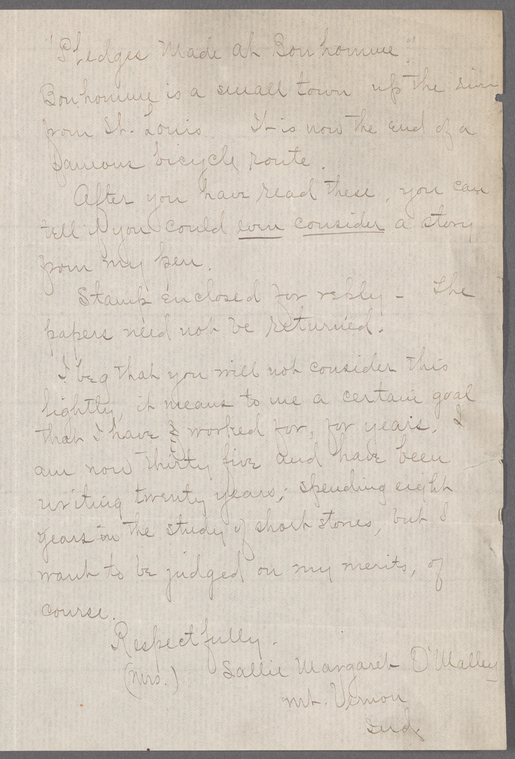 "Pledges Made at Bonhomme".
Bonhomme is a small town up the
from St. Louis. It is now the end of a
famous bicycle route.
After you have read these, you can
tell if you could even consider a story
from my pen.
Stamp enclosed for reply - The
papers need not be returned.
I beg that you will not consider this
lightly, it means to me a certain goal
that I have & worked for, for years. I
am now thirty five and have been
writing twenty years; spending eight
years in the study of short stories, but I
want to be judged on my merits, of
course.
Respectfully.
(Mrs.) Sallie Margaret O'Malley
Mt. Vernon
Ind.